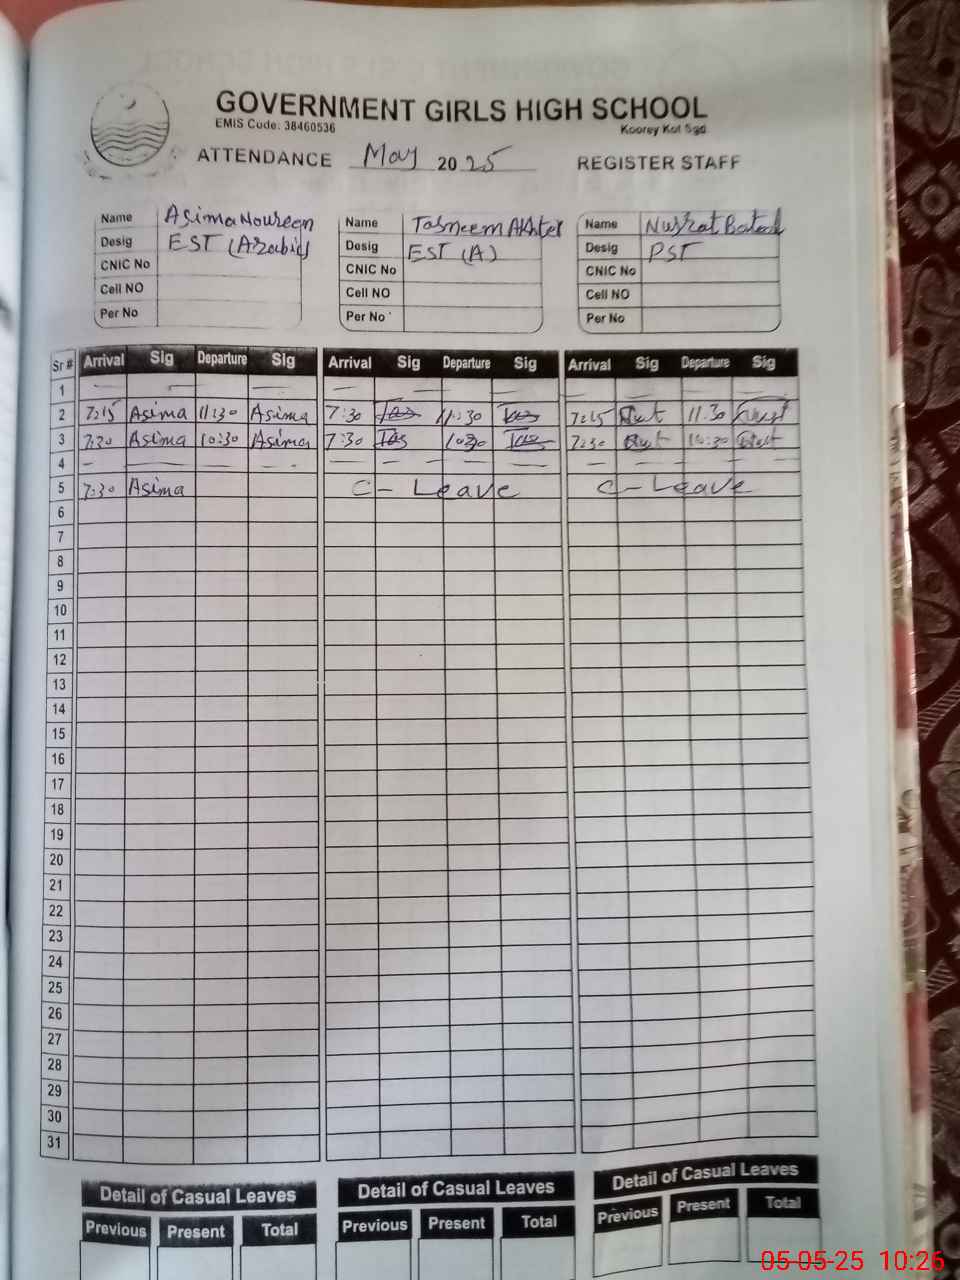 GOVERNMENT GIRLS HIGH SCHOOL
EMIS Code: 38460536 Koorey Kot Sgd
ATTENDANCE May 2025 REGISTER STAFF
Name Asima Noureen Name Tasneem Akhter Name Nusrat Batool
Desig EST (Arabic) Desig EST (A) Desig PST
CNIC No CNIC No CNIC No
Cell NO Cell NO Cell NO
Per No Per No Per No
Sr # Arrival Sig Departure Sig Arrival Sig Departure Sig Arrival Sig Departure Sig
1 — — — — — — —
2 7:15 Asima 11:30 Asima 7:30 Tas 11:30 Tas 7:15 11.30
3 7:30 Asima 10:30 Asima 7:30 Tas 10:30 Tas 7:30 10:30
4 — — — — — — — — — — — —
5 7:30 Asima C - Leave C - Leave
6
7
8
9
10
11
12
13
14
15
16
17
18
19
20
21
22
23
24
25
26
27
28
29
30
31
Detail of Casual Leaves Detail of Casual Leaves Detail of Casual Leaves
Previous Present Total Previous Present Total Previous Present Total
05-05-25 10:26